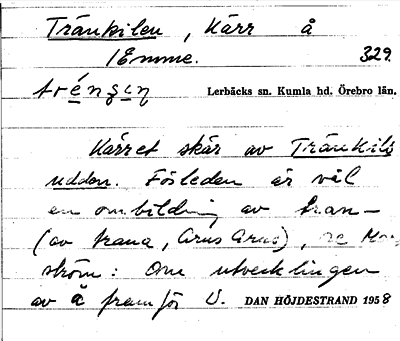 Tränkilen, Kärr å
/Emme. 329.
Lerbäcks sn. Kumla hd. Örebro län.
Kärret skär av Tränkils
udden. Förleden är väl
en ombildning av tran-
(av trana, Grus Grus),
ström: Om utvecklingen
av ä framför U. DAN HÖJDESTRAND 1958